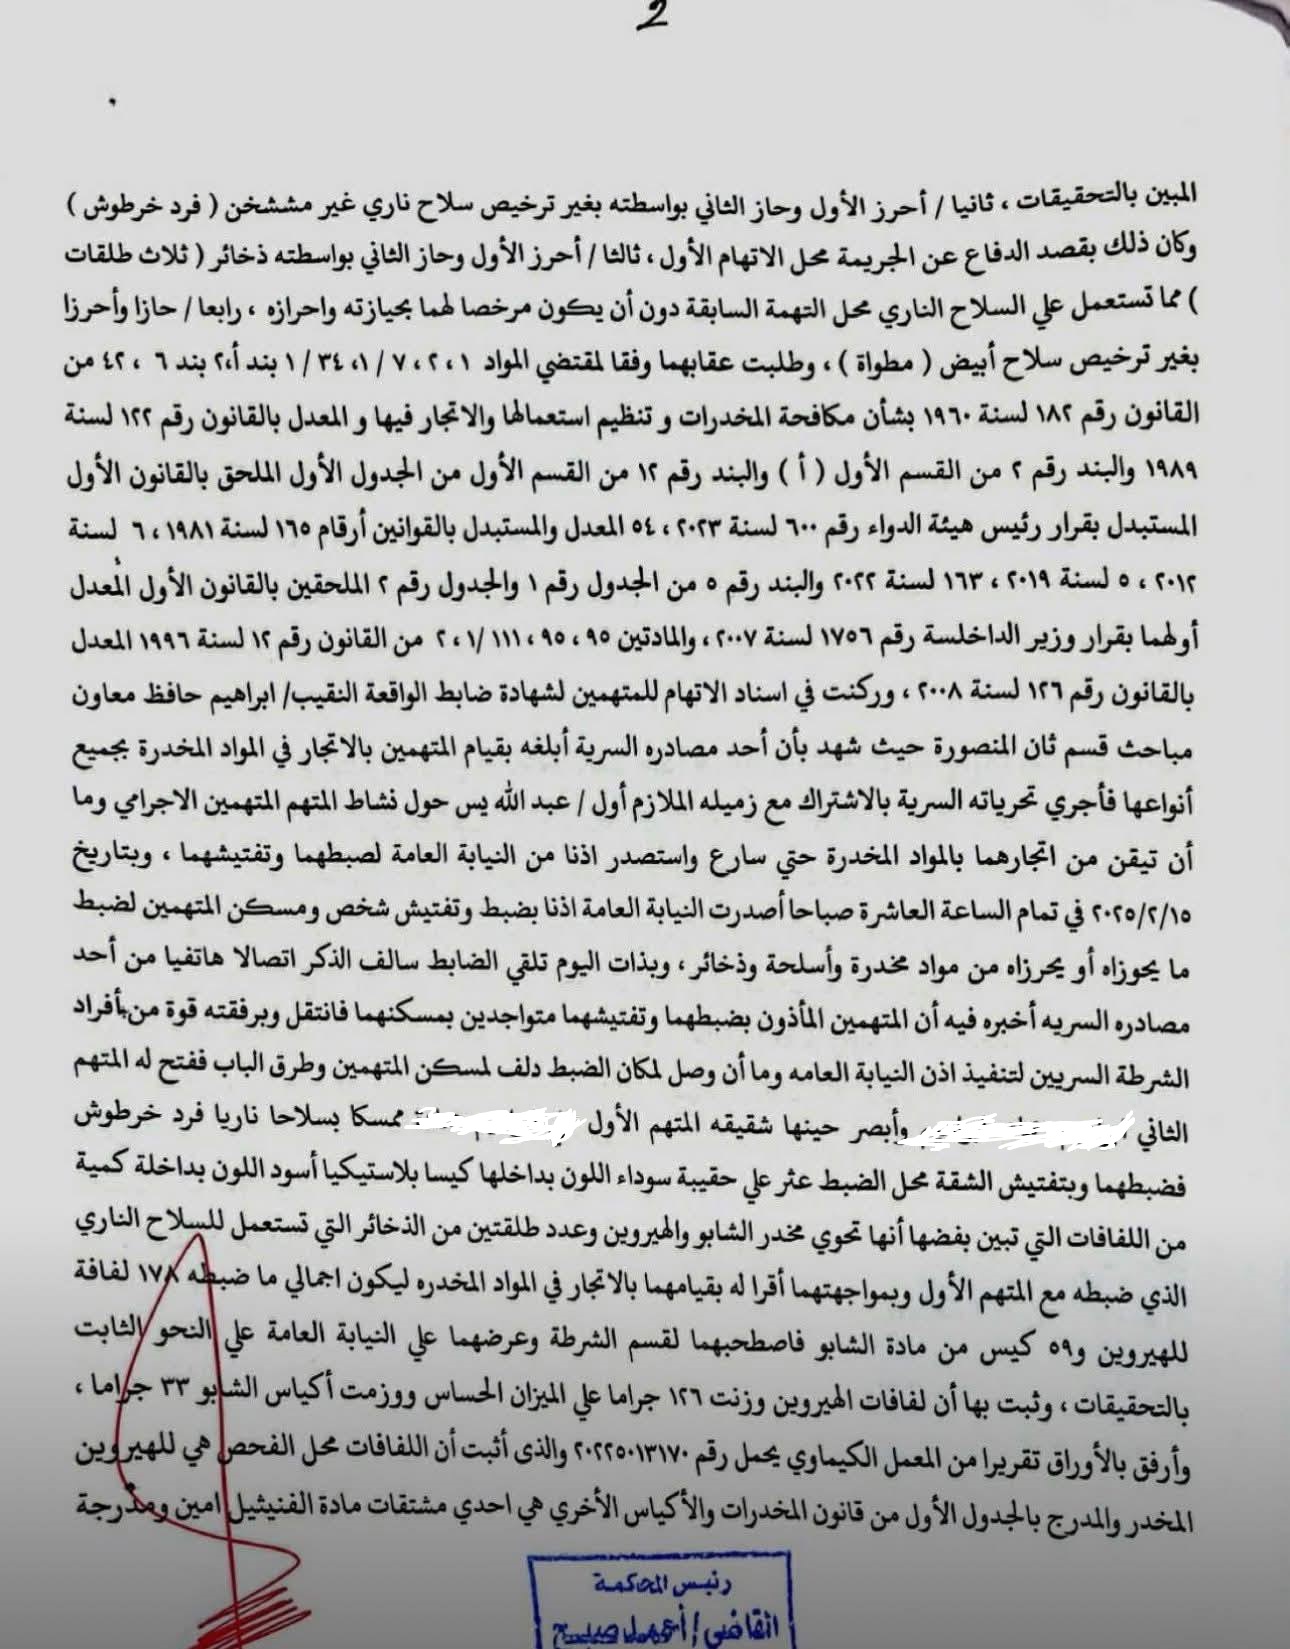 2
المبين بالتحقيقات ، ثانيا / أحرز الأول وحاز الثاني بواسطته بغير ترخيص سلاح ناري غير مششخن ( فرد خرطوش )
وكان ذلك بقصد الدفاع عن الجريمة محل الاتهام الأول ، ثالثا / أحرز الأول وحاز الثاني بواسطته ذخائر ( ثلاث طلقات
) مما تستعمل علي السلاح الناري محل التهمة السابقة دون أن يكون مرخصا لهما بحيازته واحرازه ، رابعا / حازا وأحرزا
بغير ترخيص سلاح أبيض ( مطواة ) ، وطلبت عقابهما وفقا لمقتضي المواد ١ ، ٢ ، ٧ / ١، ٣٤ / ١ بند أ،٢ بند ٦ ، ٤٢ من
القانون رقم ١٨٢ لسنة ١٩٦٠ بشأن مكافحة المخدرات و تنظيم استعمالها والاتجار فيها و المعدل بالقانون رقم ١٢٢ لسنة
١٩٨٩ والبند رقم ٢ من القسم الأول ( أ ) والبند رقم ١٢ من القسم الأول من الجدول الأول الملحق بالقانون الأول
المستبدل بقرار رئيس هيئة الدواء رقم ٦٠٠ لسنة ٢٠٢٣ ، ٥٤ المعدل والمستبدل بالقوانين أرقام ١٦٥ لسنة ١٩٨١ ، ٦ لسنة
٢٠١٢ ، ٥ لسنة ٢٠١٩ ، ١٦٣ لسنة ٢٠٢٢ والبند رقم ٥ من الجدول رقم ١ والجدول رقم ٢ الملحقين بالقانون الأول المعدل
أولهما بقرار وزير الداخلسة رقم ١٧٥٦ لسنة ٢٠٠٧ ، والمادتين ٩٥ ، ٩٥ ، ١١١ /١ ، ٢ من القانون رقم ١٢ لسنة ١٩٩٦ المعدل
بالقانون رقم ١٢٦ لسنة ٢٠٠٨ ، وركنت في اسناد الاتهام للمتهمين لشهادة ضابط الواقعة النقيب/ ابراهيم حافظ معاون
مباحث قسم ثان المنصورة حيث شهد بأن أحد مصادره السرية أبلغه بقيام المتهمين بالاتجار في المواد المخدرة بجميع
أنواعها فأجري تحرياته السرية بالاشتراك مع زميله الملازم أول / عبد الله يس حول نشاط المتهم المتهمين الاجرامي وما
أن تيقن من اتجارهما بالمواد المخدرة حتي سارع واستصدر اذنا من النيابة العامة لصبطهما وتفتيشهما ، وبتاريخ
٢٠٢٥/٢/١٥ في تمام الساعة العاشرة صباحا أصدرت النيابة العامة اذنا بضبط وتفتيش شخص ومسكن المتهمين لضبط
ما يحوزاه أو يحرزاه من مواد مخدرة وأسلحة وذخائر ، وبذات اليوم تلقي الضابط سالف الذكر اتصالا هاتفيا من أحد
مصادره السريه أخبره فيه أن المتهمين المأذون بضبطهما وتفتيشهما متواجدين بمسكنهما فانتقل وبرفقته قوة من أفراد
الشرطة السريين لتنفيذ اذن النيابة العامه وما أن وصل لمكان الضبط دلف لمسكن المتهمين وطرق الباب ففتح له المتهم
الثاني وأبصر حينها شقيقه المتهم الأول ممسكا بسلاحا ناريا فرد خرطوش
فضبطهما وبتفتيش الشقة محل الضبط عثر علي حقيبة سوداء اللون بداخلها كيسا بلاستيكيا أسود اللون بداخلة كمية
من اللفافات التي تبين بفضها أنها تحوي مخدر الشابو والهيروين وعدد طلقتين من الذخائر التي تستعمل للسلاح الناري
الذي ضبطه مع المتهم الأول وبمواجهتهما أقرا له بقيامهما بالاتجار في المواد المخدره ليكون اجمالي ما ضبطه ١٧٨ لفافة
للهيروين و٥٩ كيس من مادة الشابو فاصطحبهما لقسم الشرطة وعرضهما علي النيابة العامة علي النحو الثابت
بالتحقيقات ، وثبت بها أن لفافات الهيروين وزنت ١٢٦ جراما علي الميزان الحساس ووزمت أكياس الشابو ٣٣ جراما ،
وأرفق بالأوراق تقريرا من المعمل الكيماوي يحمل رقم ٢٠٢٢٥٠١٣١٧٠ والذى أثبت أن اللفافات محل الفحص هي للهيروين
المخدر والمدرج بالجدول الأول من قانون المخدرات والأكياس الأخري هي احدي مشتقات مادة الفنيثيل امين ومدرجة
رئيس المحكمة
القاضي /